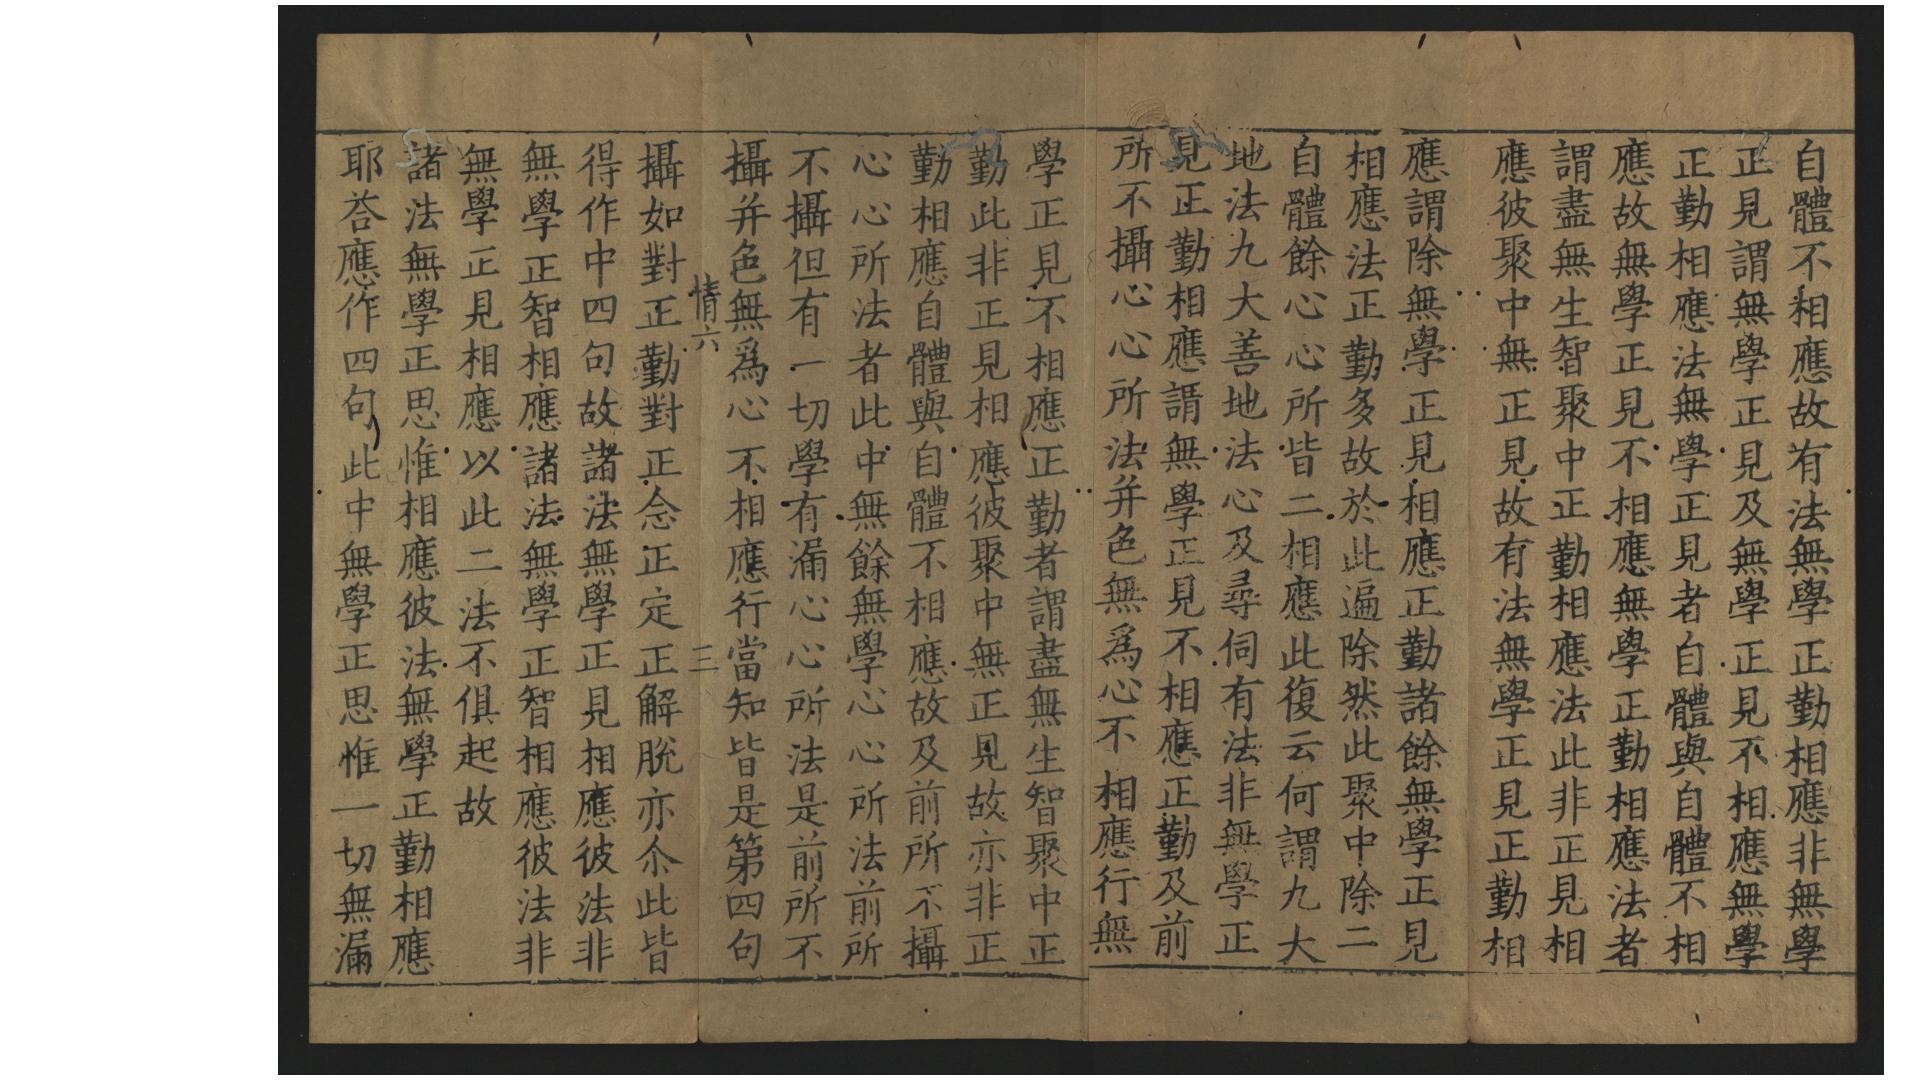 自體不相應故有法無學正勤相應非無學
正見謂無學正見及無學正見不相應無學
正勤相應法無學正見者自體與自體不相
應故無學正見不相應無學正勤相應法者
謂盡無生智聚中正勤相應法此非正見相
應彼聚中無正見故有法無學正見正勤相
應謂除無學正見相應正勤諸餘無學正見
相應法正勤多故於此遍除然此聚中除二
自體餘心心所皆二相應此復云何謂九大
地法九大善地法心及尋伺有法非無學正
見正勤相應謂無學正見不相應正勤及前
所不攝心心所法并色無為心不相應行無
學正見不相應正勤者謂盡無生智聚中正
勤此非正見相應彼聚中無正見故亦非正
勤相應自體與自體不相應故及前所不攝
心心所法者此中無餘無學心心所法前所
不攝但有一切學有漏心心所法是前所不
攝并色無為心不相應行當知皆是第四句
情六 三
攝如對正勤對正念正定正解脫亦尒此皆
得作中四句故諸法無學正見相應彼法非
無學正智相應諸法無學正智相應彼法非
無學正見相應以此二法不俱起故
諸法無學正思惟相應彼法無學正勤相應
耶荅應作四句此中無學正思惟一切無漏